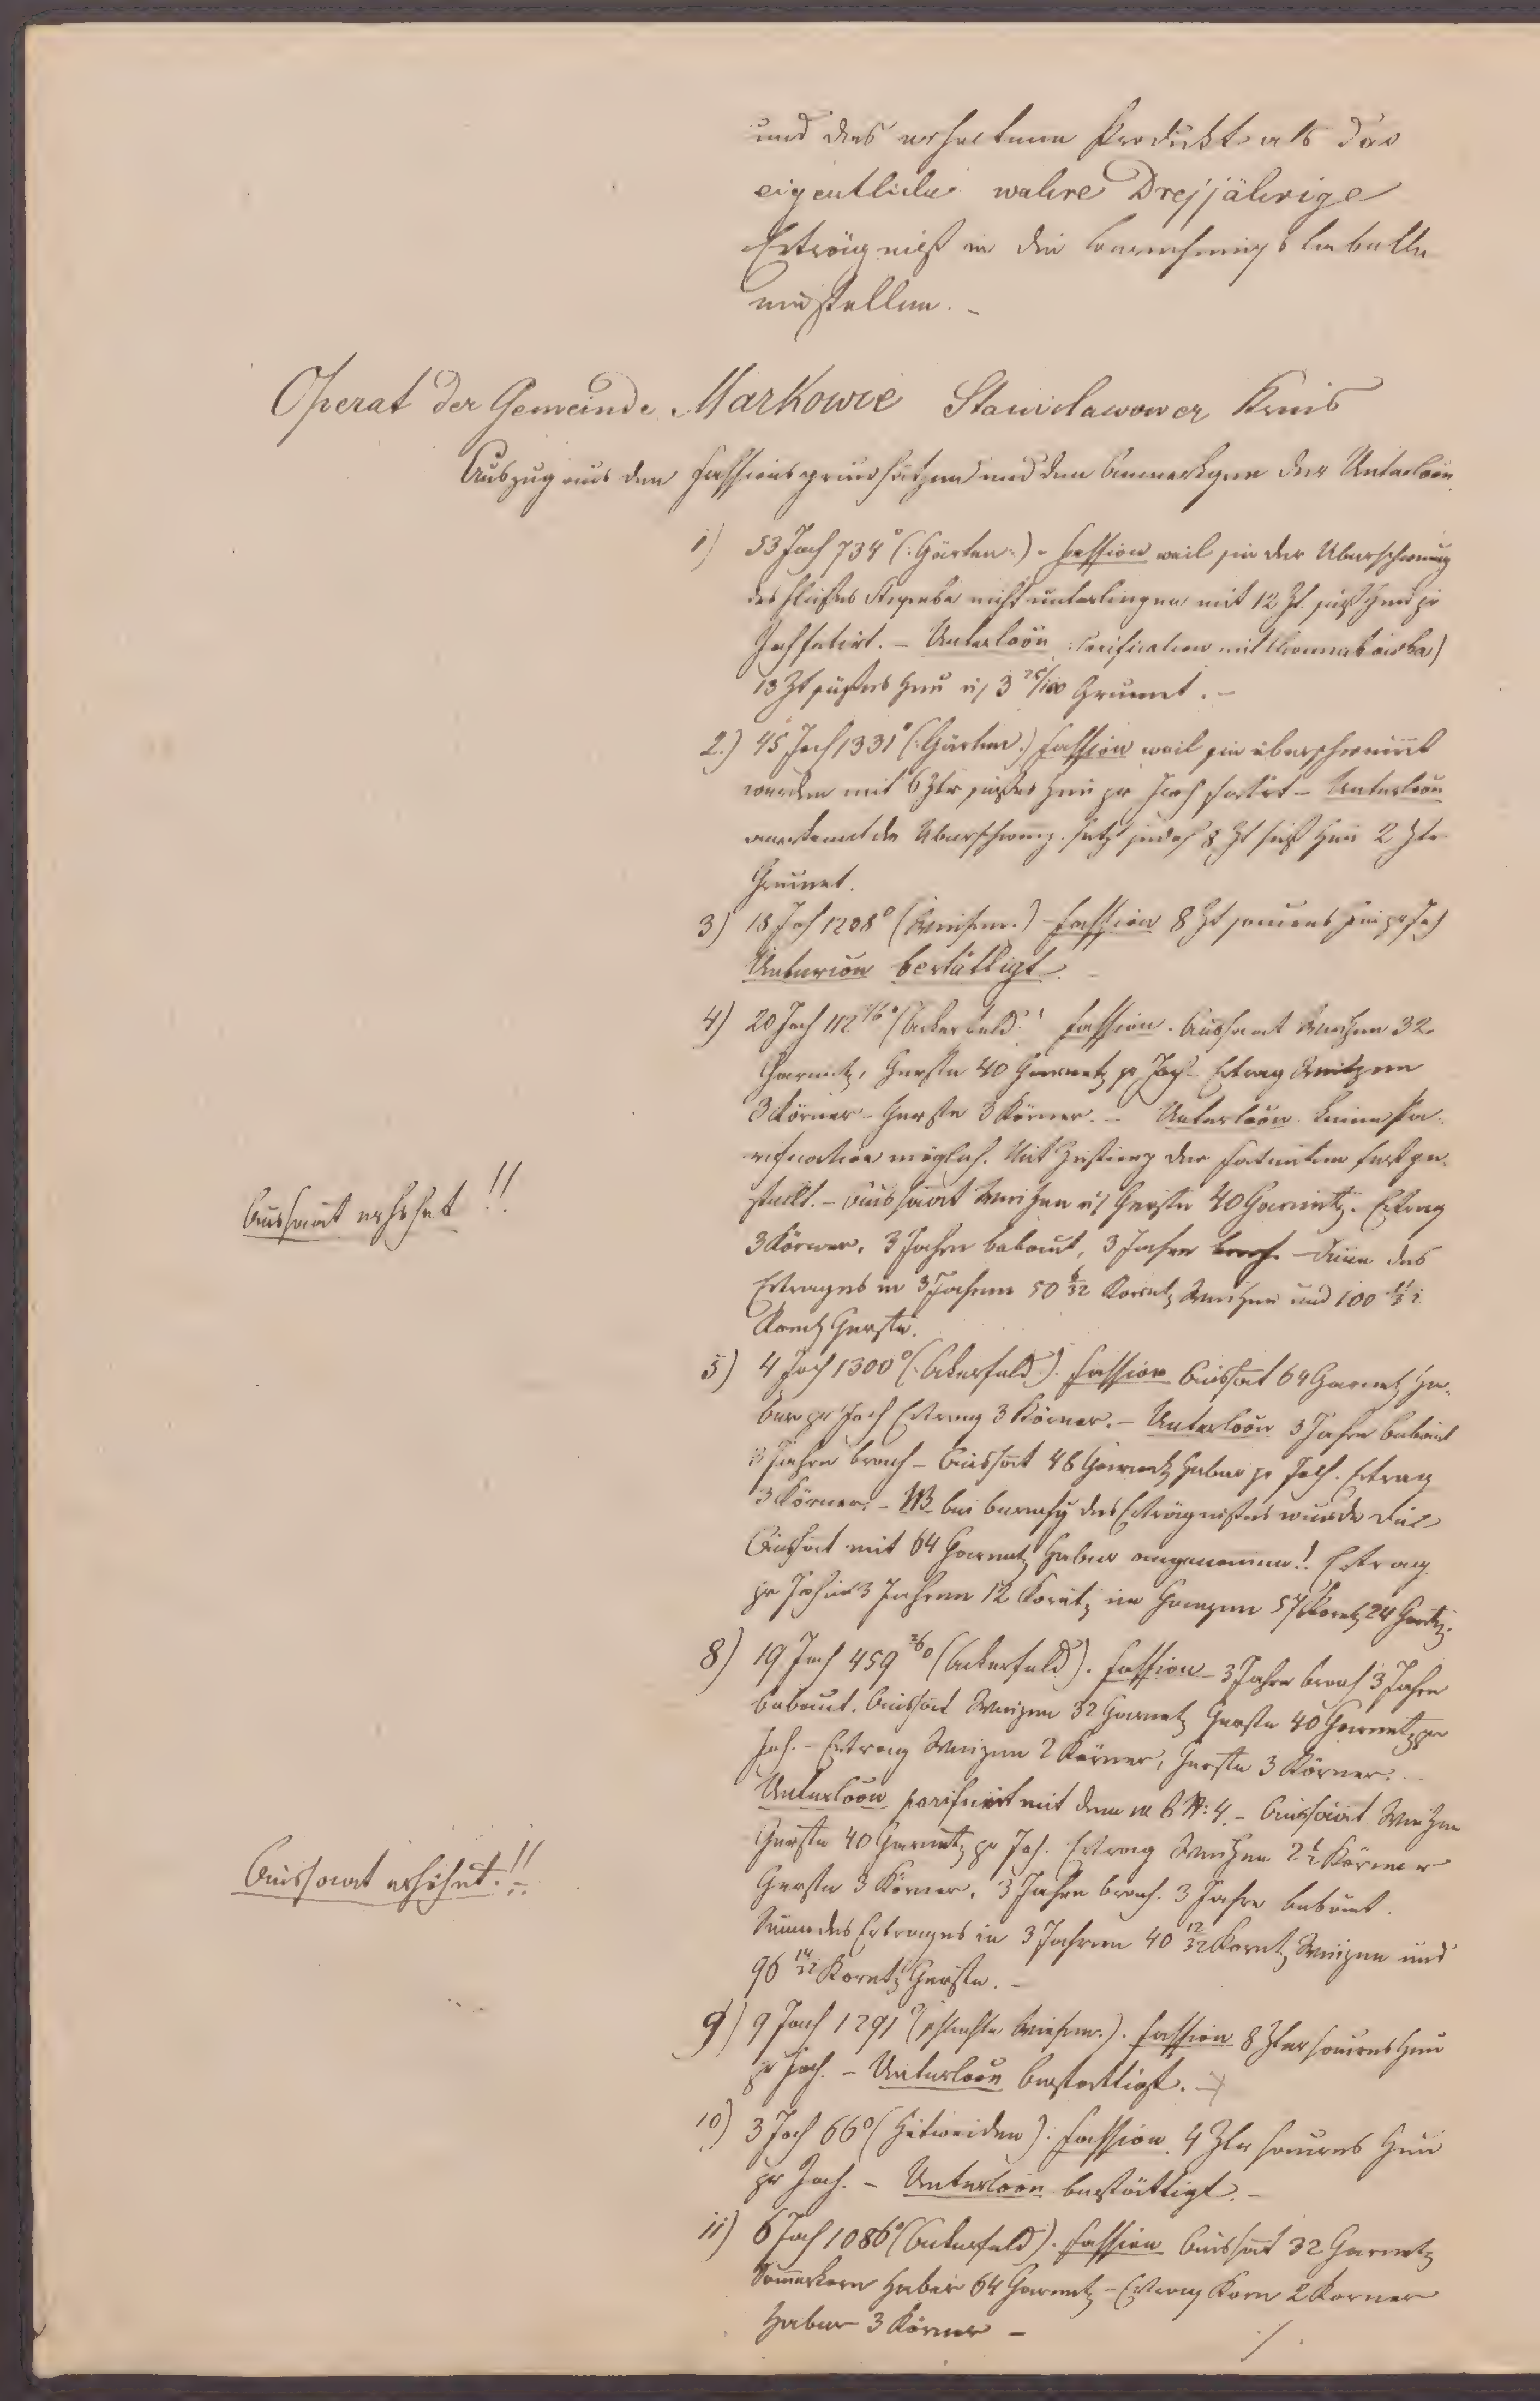 und das erhaltene Produkt als das
eigentliche wahre Dreijährige
Erträgniß in die Berechnungs tabelle
einstellen. –
Operat der Gemeinde Markowce Stanislawower Kreis
Auszug aus den Fassionsgrundsätzen und den Anmerkgen der Unterloōn
1) 53 Joch 734° (: Gärten :) – Fassion weil sie der Uberschwemg
des Flußes nicht unterliegen mit 12 Zt süß Heu pr
Joch fatirt. – Unterloōn : Parification mit
13 Zt süßes Heu u 3 75/100 Grumet. –
2.) 45 Joch 1331° (: Gärten.) Fassion weil sie überschwemmt
werden mit 6 Ztr süßes Heu pr Joch fatirt – Unterloōn
anerkennt die Uberschwemg. setzt jedoch 8 Zt süß Heu 2 Ztr
Grumet.
3) 18 Joch 1208° (Wiesen.) – Fassion 8 Zt saueres Heu pr Joch
Unterloōn bestättigt. –
4) 20 Joch 112 1/6° (Ackerfeld.) Fassion. Aussaat Weitzen 32
Garnetz, Gerste 40 Garnetz pr Joch – Ertrag Weitzen
3 Körner – Gerste 3 Körner. – Unterloōn. keine Pa-
rification möglich. Mit der Fatenten festge-
stellt. – Aussaat Weitzen u Gerste 40 Garnetz. Ertrag
3 Körner, 3 Jahre bebaut, 3 Jahre brach – des
Ertrages in 3 Jahren 50 Koretz Weitzen und 100
Koretz Gerste.
Aussaat erhöhet!!
5) 4 Joch 1300° (: Ackerfeld.). Fassion Aussat 64 Garnetz Ha-
ber pr Joch Ertrag 3 Körner. – Unterloōn 3 Jahre bebaut
3 Jahre brach – Aussat 48 Garnetz Haber pr Joch. Ertrag
3 Körner. – NB. bei Berechg des Erträgnißes wurde die
Aussat mit 64 Garnetz Haber angenommen!. Ertrag
pr Joch in 3 Jahren 12 Koretz im Ganzen 57 Koretz 24 Gartz.
8) 19 Joch 459 2/6° (Ackerfeld). Fassion – 3 Jahre brach 3 Jahre
bebaut. Aussat Weizen 32 Garnetz Gerste 40 Garnetz pr
Joch. – Ertrag Weizen 2 Körner, Gerste 3 Körner.
Unterloōn parificirt mit dem N: 4. – Aussaat Weitzen
Gerste 40 Garnetz pr Joch. Ertrag Weitzen 2 1/2 Körner
Gerste 3 Körner, 3 Jahre brach. 3 Jahre bebaut.
Summe des Ertrages in 3 Jahren 40 12/32 Koretz Weizen und
96 14/32 Koretz Gerste. –
Aussaat erhöhet.!!
9) 9 Joch 1291° (schlechte Wiesen.). Fassion 8 Ztr saures Heu
pr Joch. – Unterloōn bestättigt. –
10) 3 Joch 66° (Hutweiden). Fassion. 4 Ztr saures Heu
pr Joch. – Unterloōn bestättigt. –
11) 6 Joch 1086° (Ackerfeld). Fassion Aussat 32 Garnetz
Sommerkorn Haber 64 Garnetz – Ertrag Korn 2 Korner
Haber 3 Körner –
./.